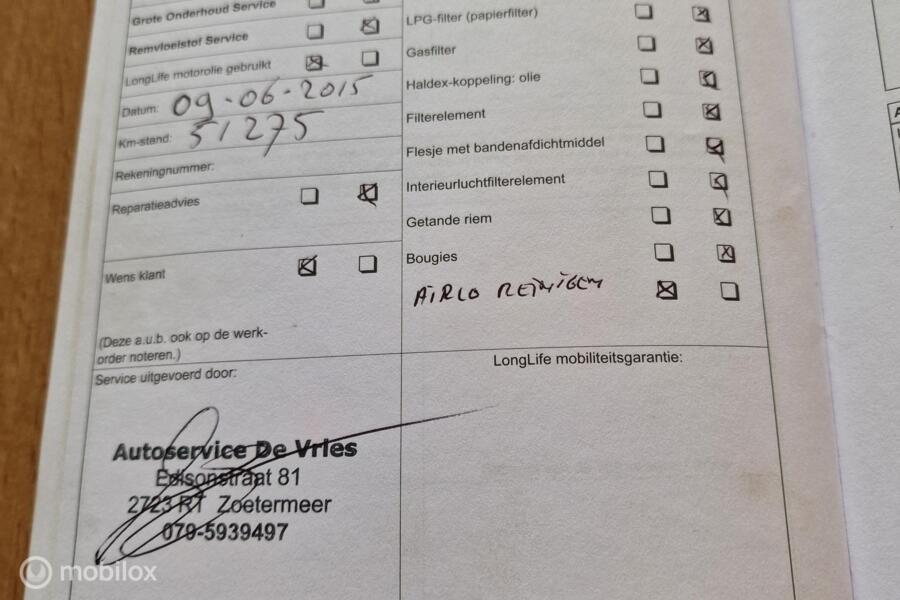 Grote Onderhoud Service
Remvloeistof Service
LongLife motorolie gebruikt
Datum: 09-06-2015
Km-stand: 51275
Rekeningnummer:
Reparatieadvies
Wens klant
(Deze a.u.b. ook op de werk-
order noteren.)
Service uitgevoerd door:
Autoservice De Vries
Edisonstraat 81
2723 RT Zoetermeer
079-5939497
LPG-filter (papierfilter)
Gasfilter
Haldex-koppeling: olie
Filterelement
Flesje met bandenafdichtmiddel
Interieurluchtfilterelement
Getande riem
Bougies
AIRCO REINIGEN
LongLife mobiliteitsgarantie:
mobilox